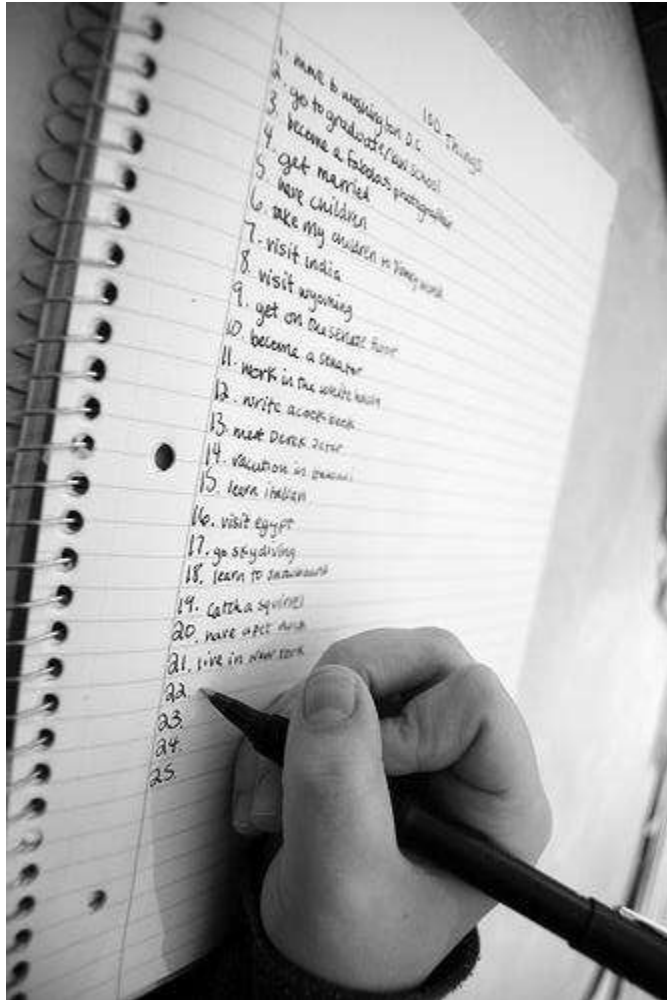 100 Things
1. move to washington D.C.
2. go to graduate/law school
3. become a fabulous photographer
4. get married
5. have children
6. take my children to Disney world
7. visit india
8. visit wyoming
9. get on
10. become a senator
11. work in the white house
12. write a cookbook
13. meet Derek Jeter
14. vacation in
15. learn italian
16. visit egypt
17. go skydiving
18. learn to snowboard
19. catch a squirrel
20. have a pet
21. live in new york
22.
23.
24.
25.